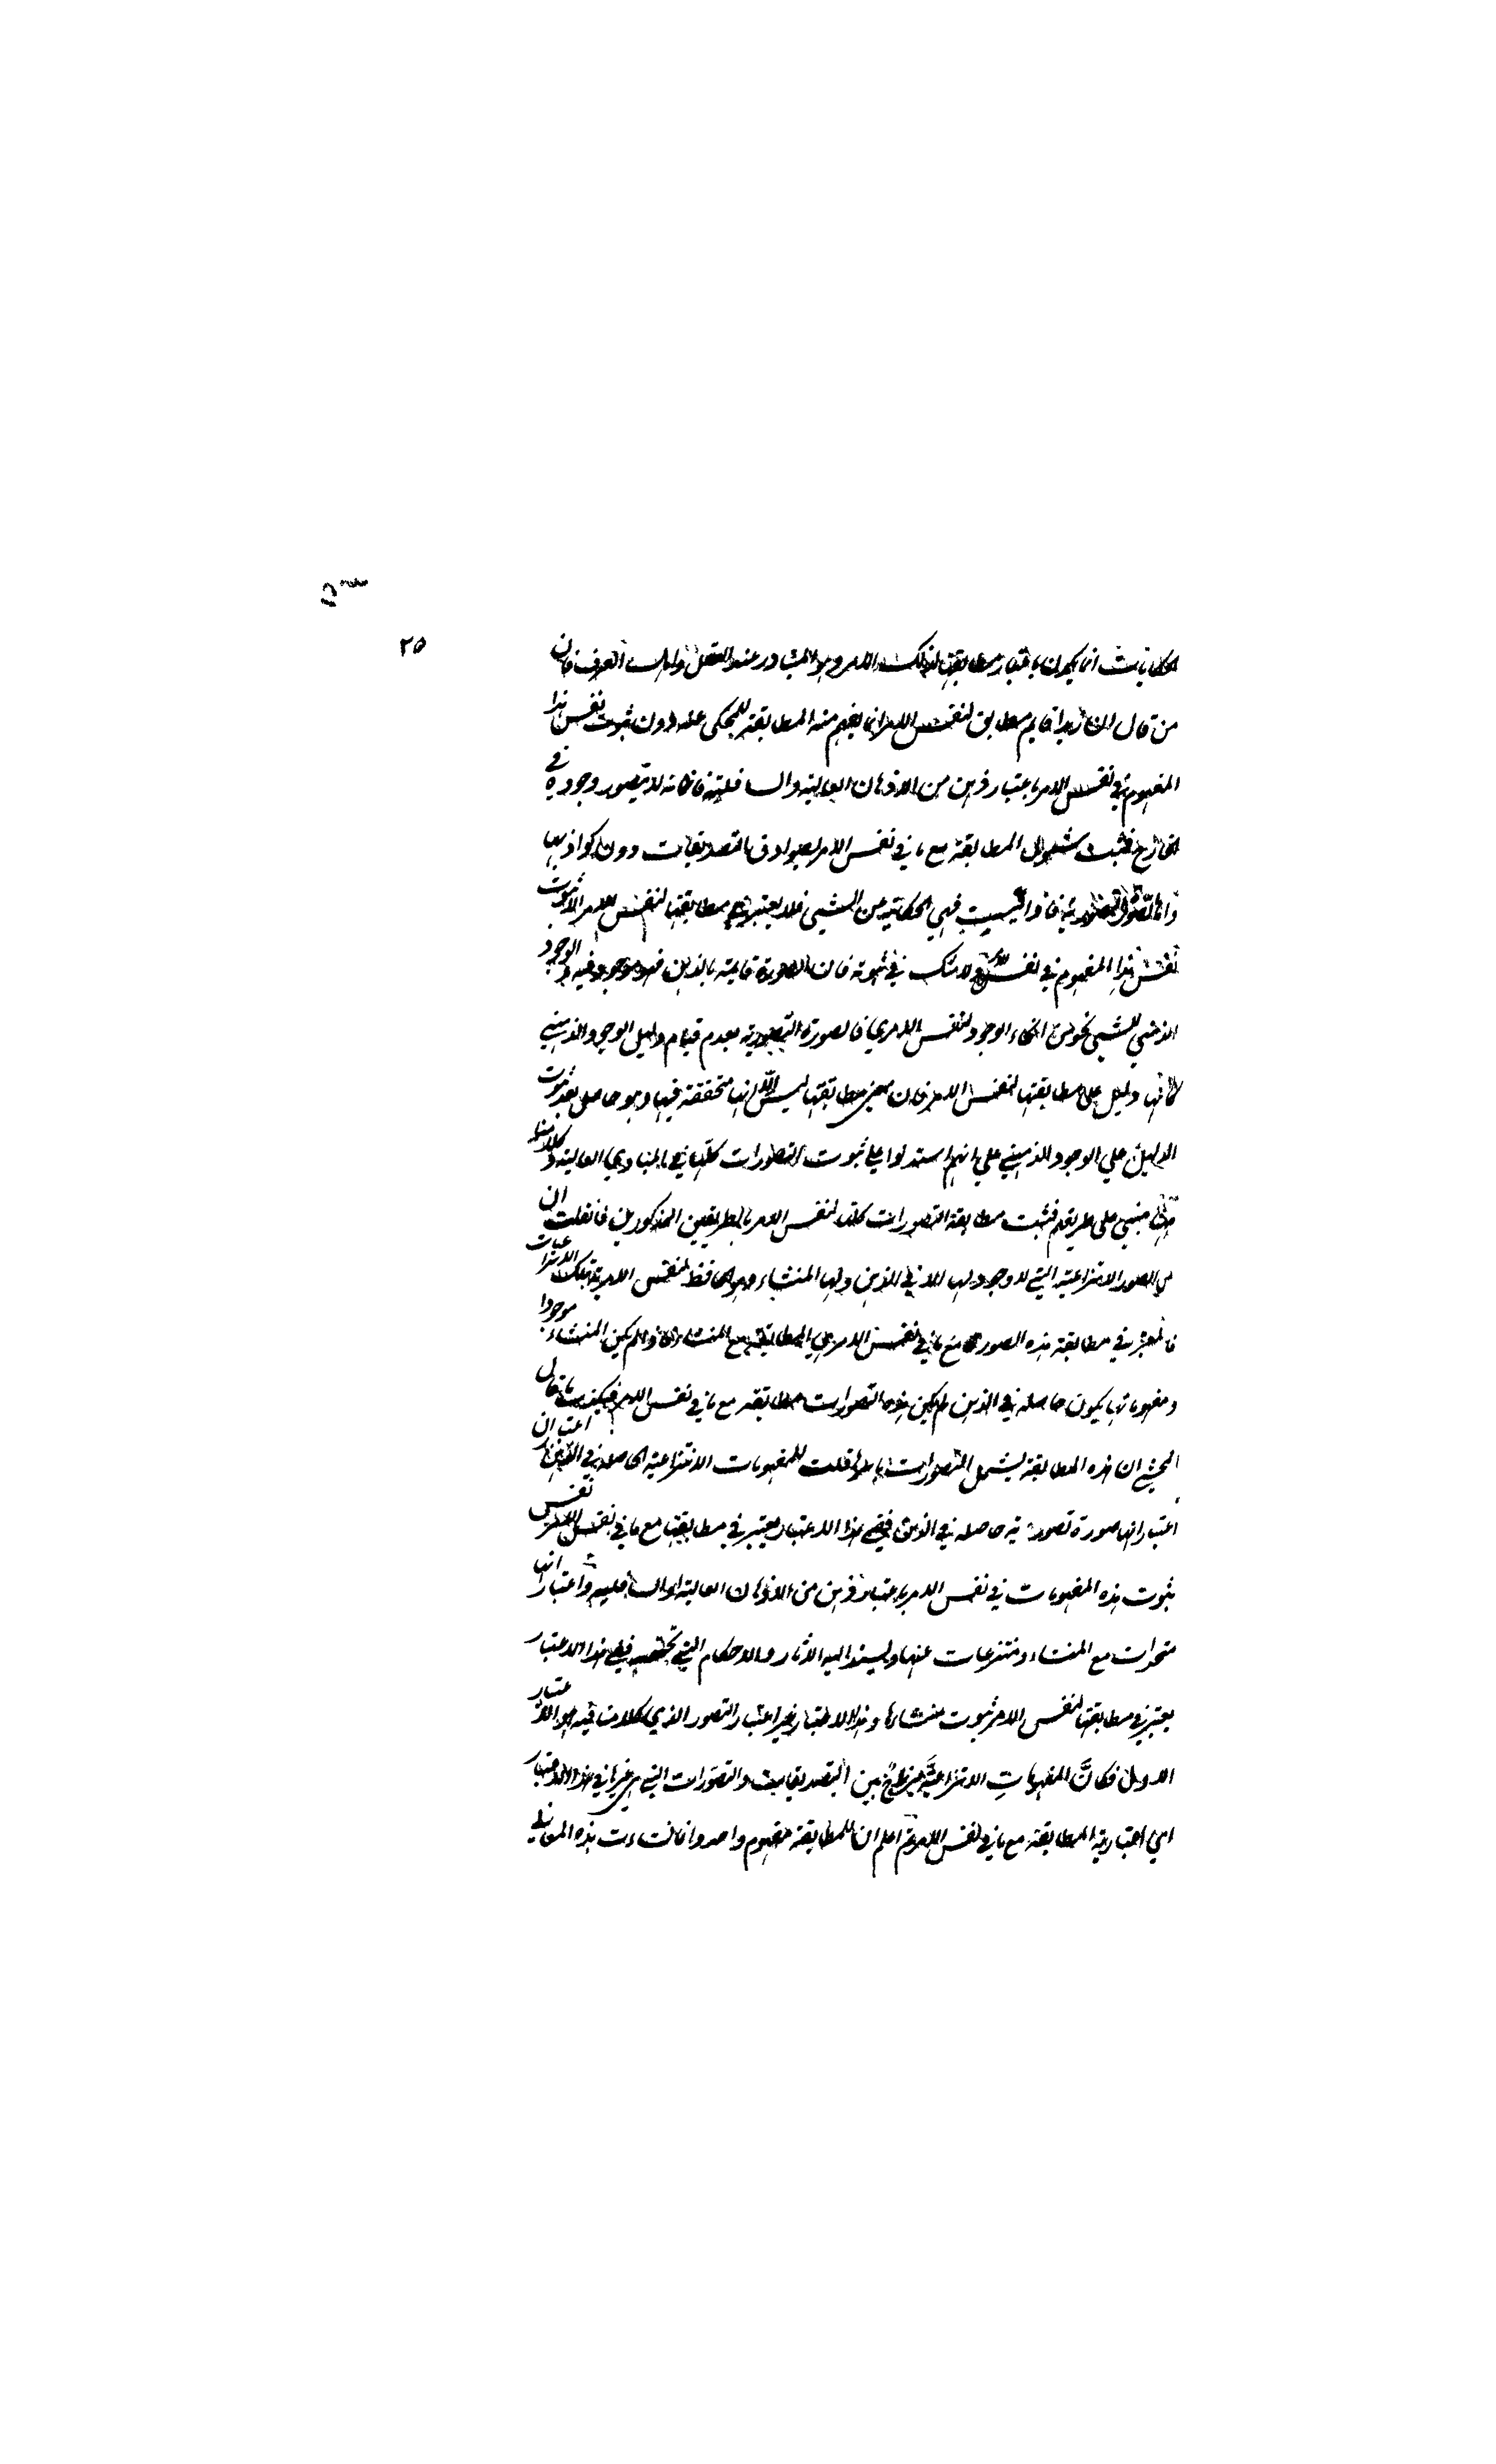 ٢٥
الحكايات انما يكون باعتبار مطابقتها لذلك الامر وهو المتبادر عند العقل واهل العرف فان
من قال ان زيدا قايم مطابق لنفس الامر انما يفهم منه المطابقة للمحكى عنه دون ثبوت نفس هذا
المفهوم في نفس الامر باعتبار ذهن من الاذهان العالية والسافلة فانه لا يتصور وجوده في
الخارج فثبت شمول المطابقة مع ما في نفس الامر لصوادق التصديقات دون كواذبها
واما الصور التصورية فاذ ليست فيها الحكاية من الشيء فلا يعتبر في مطابقتها لنفس الامر الا ثبوت
نفس هذا المفهوم في نفس الامر ولا شك في ثبوته فان الصورة قايمة بالذهن فهو موجود فيه والوجود
الذهني للشيء نحو من انحاء الوجود النفس الامري فالصورة التصورية بعدم قيام دليل الوجود الذهني
كانها دليل على مطابقتها لنفس الامر فان معنى مطابقتها ليس الا انها متحققة فيها وهو حاصل بعد ثبوت
الدليل على الوجود الذهني على انهم استدلوا على ثبوت التصورات كلها في المبادي العالية وكلامنا
مبني على طريقهم فثبت مطابقة التصورات كلها لنفس الامر بالطريقين المذكورين فان قلت ان
الصور الانتزاعية التي لا وجود لها الا في الذهن ولها المنشاء وهو الحافظ لنفس الامرية تلك الانتزاعيات
فالمعتبر في مطابقة هذه الصور مع ما في نفس الامر هي المطابقة مع المنشاء فاذا لم يكن المنشاء موجودا
ومفهوماتها يكون حاصلة في الذهن لم يكن هذه التصورات مطابقة مع ما في نفس الامر فيكذب ما قال
المحشي ان هذه المطابقة يشمل التصورات باسرها قلت للمفهومات الانتزاعية الحاصلة في الذهن اعتباران
اعتبار انها صورة تصورية حاصلة في الذهن ففي هذا الاعتبار يعتبر في مطابقتها مع ما في نفس الامر نفس
ثبوت هذه المفهومات في نفس الامر باعتبار ذهن من الاذهان العالية او السافلة واعتبار انها
متحدات مع المنشاء ومنتزعات عنها ويسند اليه الاثار والاحكام التي تختص ففي هذا الاعتبار
يعتبر في مطابقتها لنفس الامر ثبوت منشائها وهذا الاعتبار غير اعتبار التصور الذي كلامنا فيه هو الاعتبار
الاول فكانَّ المفهومات الانتزاعية برزخ بين التصديقات والتصورات التي هي غيرها في هذا الاعتبار
اي اعتبارية المطابقة مع ما في نفس الامر ثم اعلم ان للمطابقة مفهوم واحد وانما نشاءت هذه المعاني